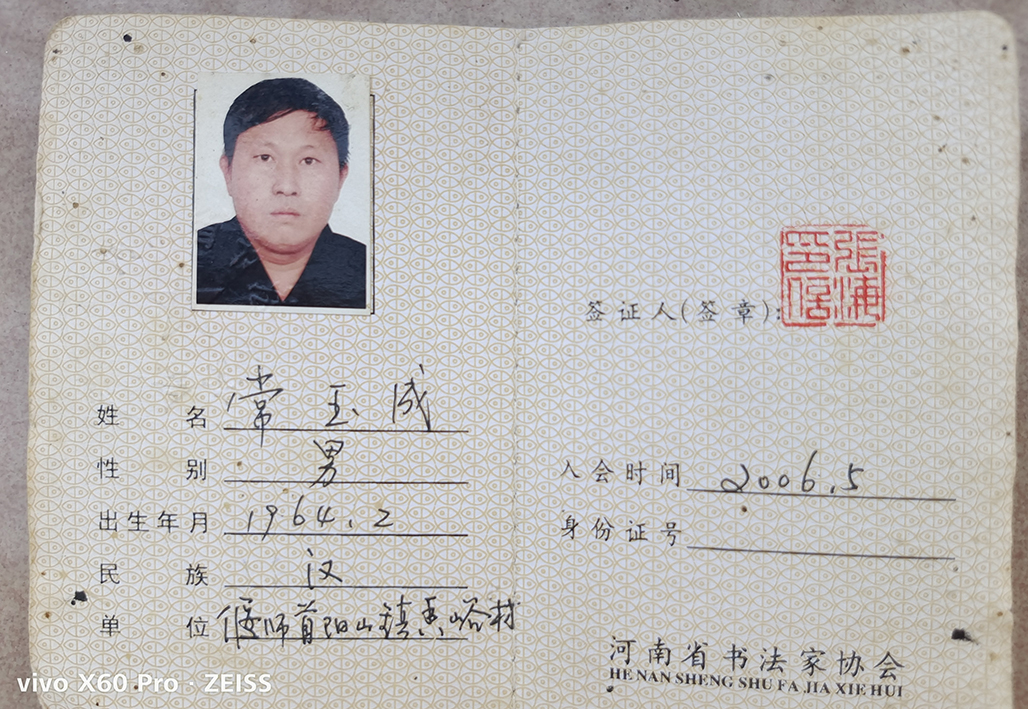 姓名 常玉成
性别 男
出生年月 1964.2
民族 汉
单位 偃师首阳山镇香峪村
签证人(签章):
入会时间 2006.5
身份证号
河南省书法家协会
HE NAN SHENG SHU FA JIA XIE HUI
vivo X60 Pro · ZEISS